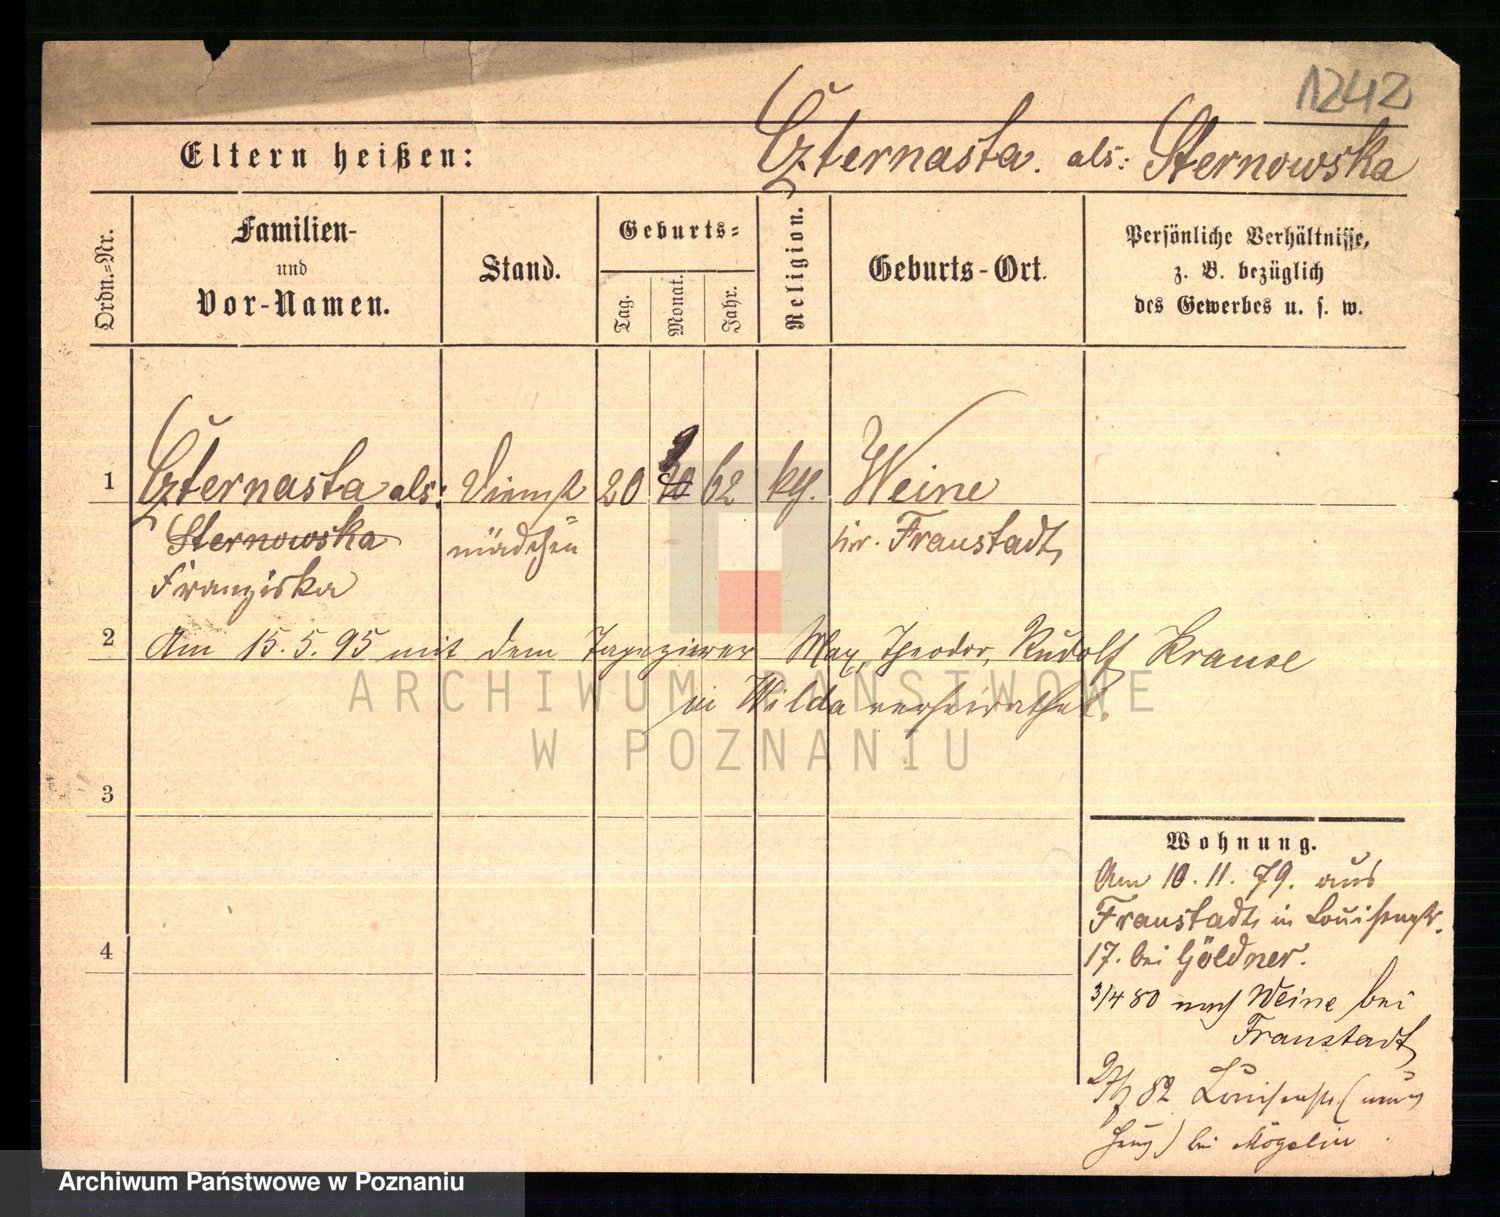 1242
Eltern heißen: Czternasta. als: Sternowska
Ordn.-Nr.
Familien-
und
Vor-Namen.
Stand.
Geburts-
Tag.
Monat.
Jahr.
Religion.
Geburts-Ort.
Persönliche Verhältnisse,
z. B. bezüglich
des Gewerbes u. s. w.
1 Czternasta als: Dienst 20 9 62 kth. Weine
Sternowska mädchen Kr. Fraustadt
Franziska
2 Am 15. 5. 95 mit dem Tapezierer Max, Theodor, Rudolf Krause
in Wilda verheirathet.
ARCHIWUM PAŃSTWOWE
W POZNANIU
3
Wohnung.
Am 10. 11. 79. aus
Fraustadt in Louisenstr.
17. bei Göldner.
4
3/4 80 nach Weine bei
Fraustadt
82 Louisenstr (
) bei Mögelin
Archiwum Państwowe w Poznaniu